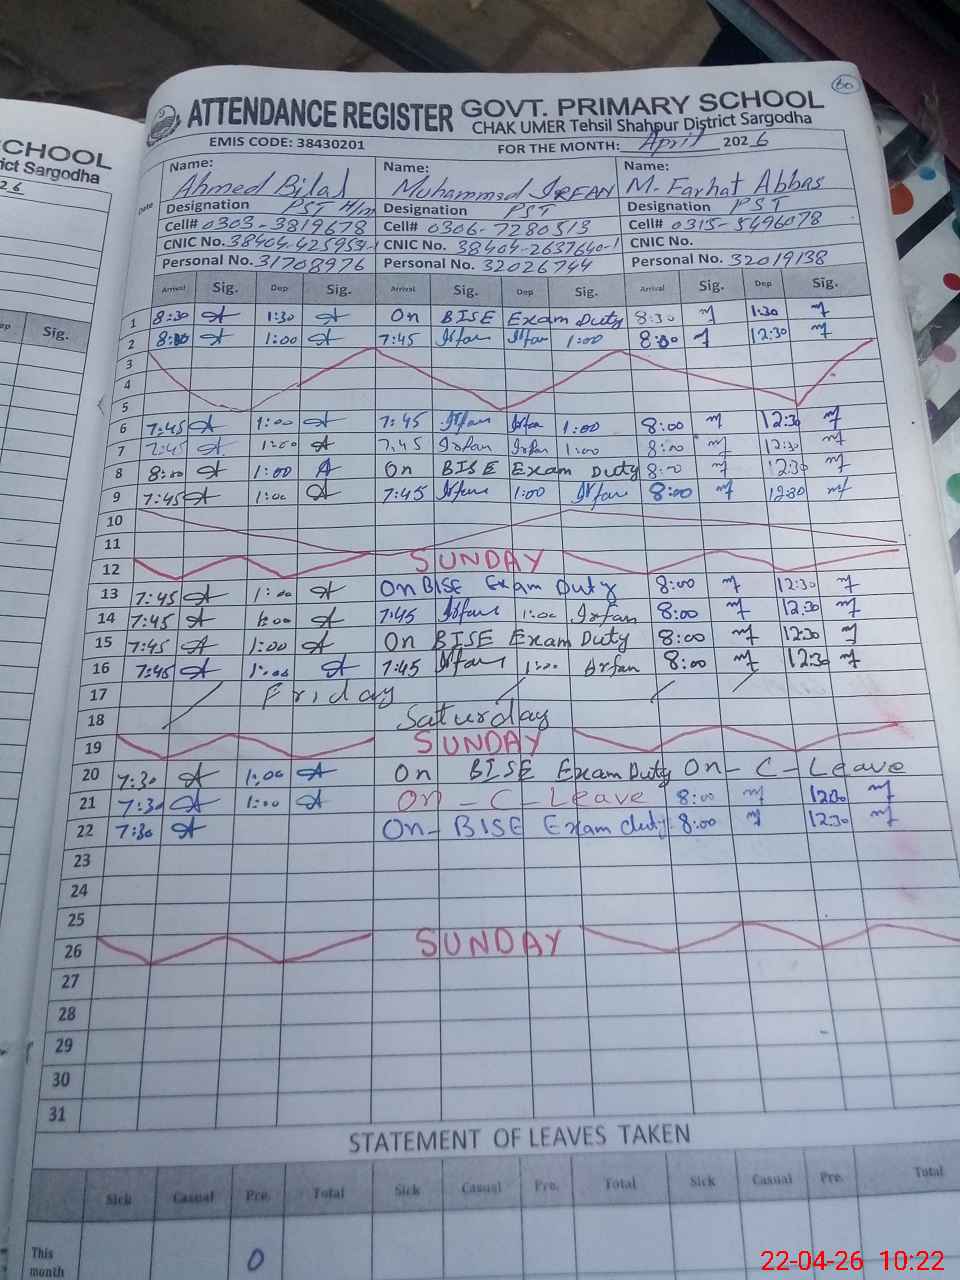 60
CHOOL
ict Sargodha
26
Sig.
ATTENDANCE REGISTER GOVT. PRIMARY SCHOOL
CHAK UMER Tehsil Shahpur District Sargodha
EMIS CODE: 38430201 FOR THE MONTH: April 2026
Date Name: Ahmed Bilal Name: Muhammad IRFAN Name: M. Farhat Abbas
Designation PST H/m Designation PST Designation PST
Cell# 0303-3819678 Cell# 0306-7280513 Cell# 0315-5496078
CNIC No. 38404-425953-1 CNIC No. 38404-2637640-1 CNIC No.
Personal No. 31708976 Personal No. 32026744 Personal No. 32019138
Arrival Sig. Dep Sig. Arrival Sig. Dep Sig. Arrival Sig. Dep Sig.
1 8:30 A 1:30 A On BISE Exam Duty 8:30 m 1:30 m
2 8:00 A 1:00 A 7:45 Irfan Irfan 1:00 8:00 m 12:30 m
3
4
5
6 7:45 A 1:00 A 7:45 Irfan Irfan 1:00 8:00 m 12:30 m
7 7:45 A 1:00 A 7:45 Irfan Irfan 1:00 8:00 m 12:30 m
8 8:00 A 1:00 A On BISE Exam Duty 8:00 m 12:30 m
9 7:45 A 1:00 A 7:45 Irfan 1:00 Irfan 8:00 m 12:30 m
10
11
12 SUNDAY
13 7:45 A 1:00 A On BISE Exam Duty 8:00 m 12:30 m
14 7:45 A 1:00 A 7:45 Irfan 1:00 Irfan 8:00 m 12:30 m
15 7:45 A 1:00 A On BISE Exam Duty 8:00 m 12:30 m
16 7:45 A 1:00 A 7:45 Irfan 1:00 Irfan 8:00 m 12:30 m
17 Friday
18 Saturday
19 SUNDAY
20 7:30 A 1:00 A On BISE Exam Duty On - C - Leave
21 7:30 A 1:00 A On - C - Leave 8:00 m 12:30 m
22 7:30 A On - BISE Exam duty 8:00 m 12:30 m
23
24
25
26 SUNDAY
27
28
29
30
31
STATEMENT OF LEAVES TAKEN
Sick Casual Pre. Total Sick Casual Pre. Total Sick Casual Pre. Total
This month 0
22-04-26 10:22